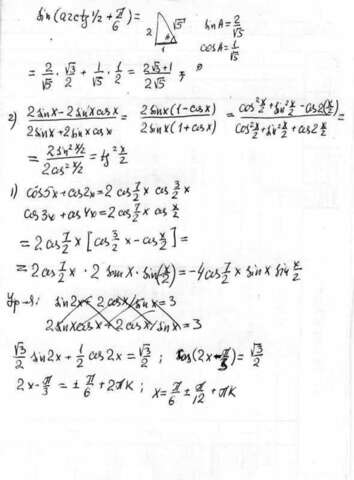 sin(arctg 1/2 + π/6) = 2 √5 1 A sinA = 2/√5
cosA = 1/√5
= 2/√5 · √3/2 + 1/√5 · 1/2 = (2√3+1)/(2√5)
2) (2sinx - 2sinxcosx)/(2sinx + 2sinxcosx) = (2sinx(1-cosx))/(2sinx(1+cosx)) = (cos² x/2 + sin² x/2 - cos2(x/2))/(cos² x/2 + sin² x/2 + cos2 x/2) =
= (2sin² x/2)/(2cos² x/2) = tg² x/2
1) cos5x + cos2x = 2 cos 7/2 x cos 3/2 x
cos3x + cos4x = 2 cos 7/2 x cos x/2
= 2 cos 7/2 x [cos 3/2 x - cos x/2] =
= 2 cos 7/2 x · 2 sin x · sin(x/2) = -4 cos 7/2 x sin x sin x/2
Ур-я: sin2x + 2cosx/sinx = 3
2sinxcosx + 2cosx/sinx = 3
√3/2 sin2x + 1/2 cos2x = √3/2 ; cos(2x - π/3) = √3/2
2x - π/3 = ± π/6 + 2πk ; x = π/6 ± π/12 + πk